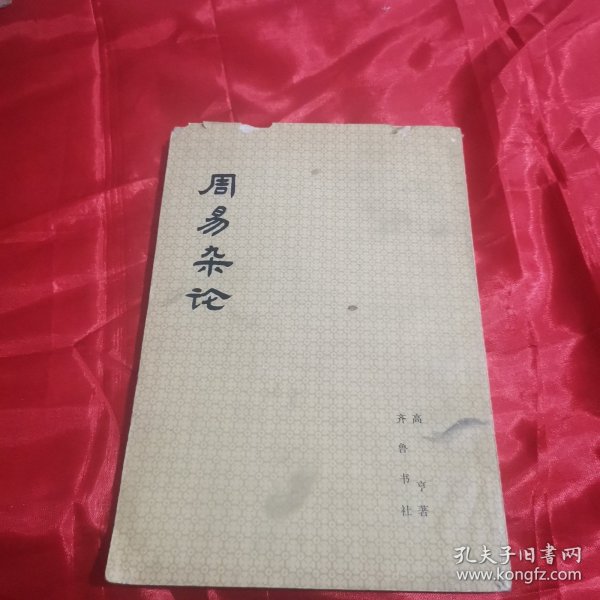 周易杂论
高亨著
齐鲁书社
孔夫子旧书网
www.kongfz.com